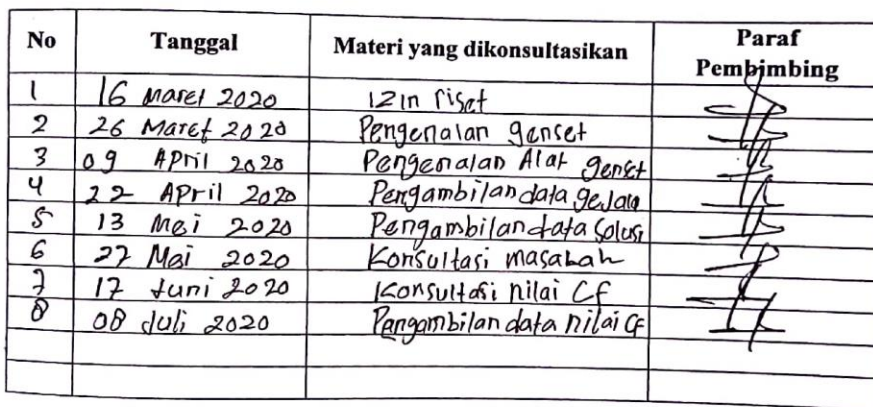 No Tanggal Materi yang dikonsultasikan Paraf Pembimbing
1 16 Maret 2020 Izin riset
2 26 Maret 2020 Pengenalan genset
3 09 April 2020 Pengenalan Alat genset
4 22 April 2020 Pengambilan data gejala
5 13 Mei 2020 Pengambilan data Solusi
6 27 Mei 2020 Konsultasi masalah
7 17 Juni 2020 Konsultasi nilai CF
8 08 Juli 2020 Pengambilan data nilai CF